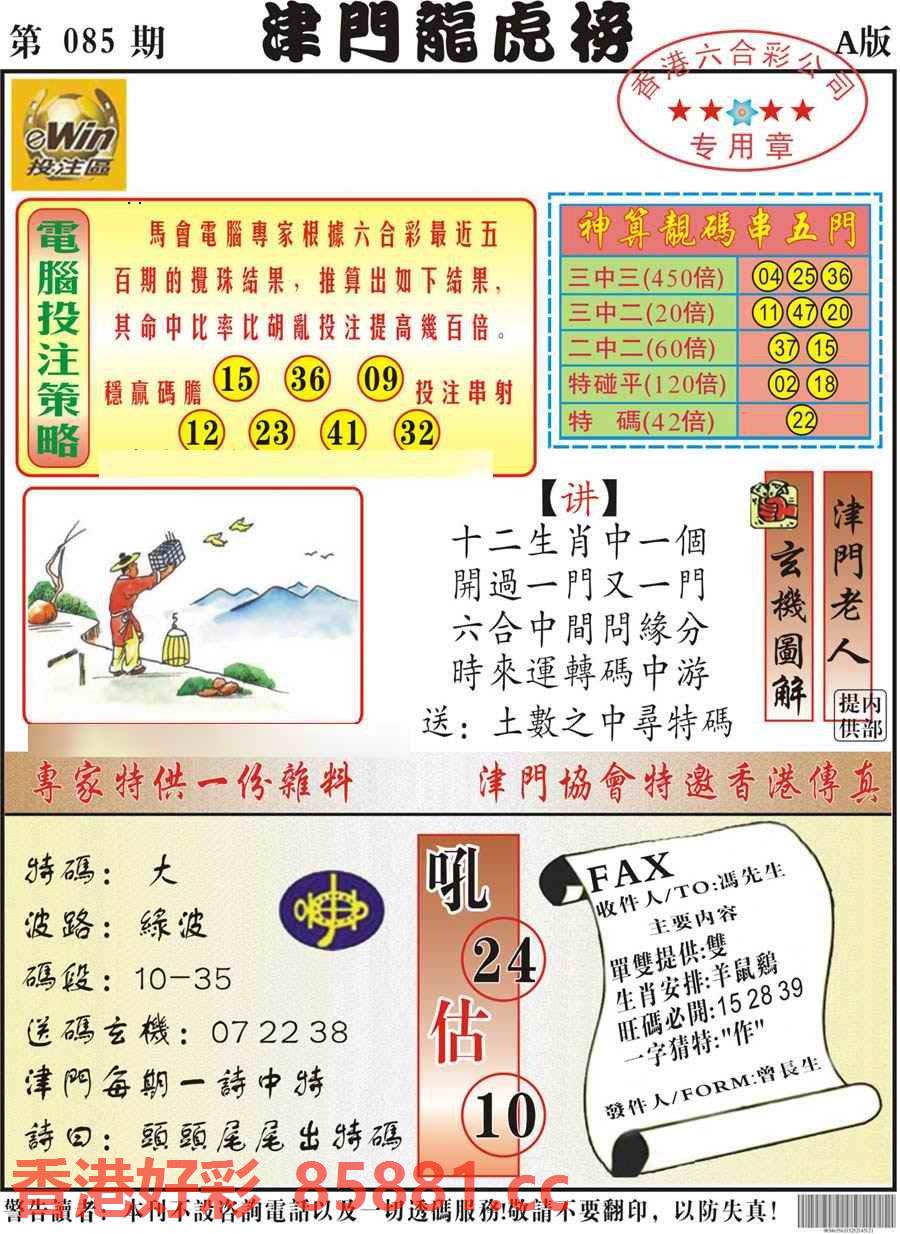 第 085 期
津門龍虎榜
A版
香港六合彩公司
专用章
eWin
投注區
電腦投注策略
馬會電腦專家根據六合彩最近五
百期的攪珠結果，推算出如下結果，
其命中比率比胡亂投注提高幾百倍。
穩贏碼膽 15 36 09 投注串射
12 23 41 32
神算靚碼串五門
三中三(450倍) 04 25 36
三中二(20倍) 11 47 20
二中二(60倍) 37 15
特碰平(120倍) 02 18
特 碼(42倍) 22
【讲】
十二生肖中一個
開過一門又一門
六合中間問緣分
時來運轉碼中游
送：土數之中尋特碼
玄機圖解
津門老人
内部提供
專家特供一份雜料
津門協會特邀香港傳真
特碼：大
波路：綠波
碼段：10-35
送碼玄機：07 22 38
津門每期一詩中特
詩曰：頭頭尾尾出特碼
吼
24
估
10
FAX
收件人/TO:馮先生
主要内容
單雙提供:雙
生肖安排:羊鼠鷄
旺碼必開:15 28 39
一字猜特:"作"
發件人/FORM:曾長生
香港好彩 85881.cc
警告讀者：本刊不設咨詢電話以及一切透碼服務!敬請不要翻印，以防失真!